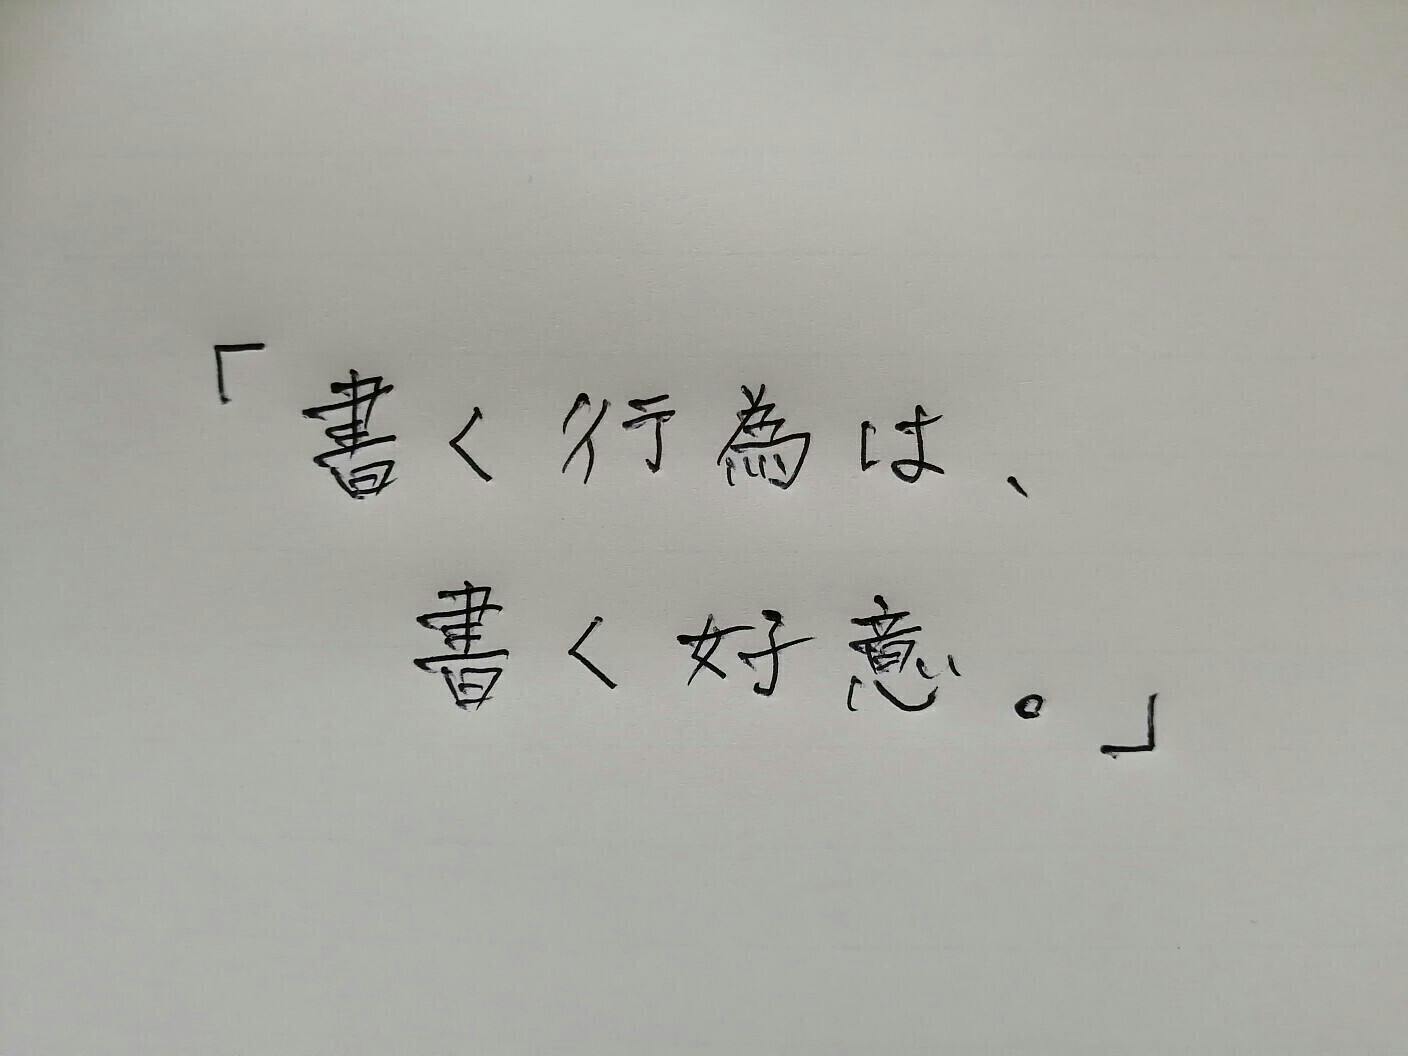 「書く行為は、
書く好意。」